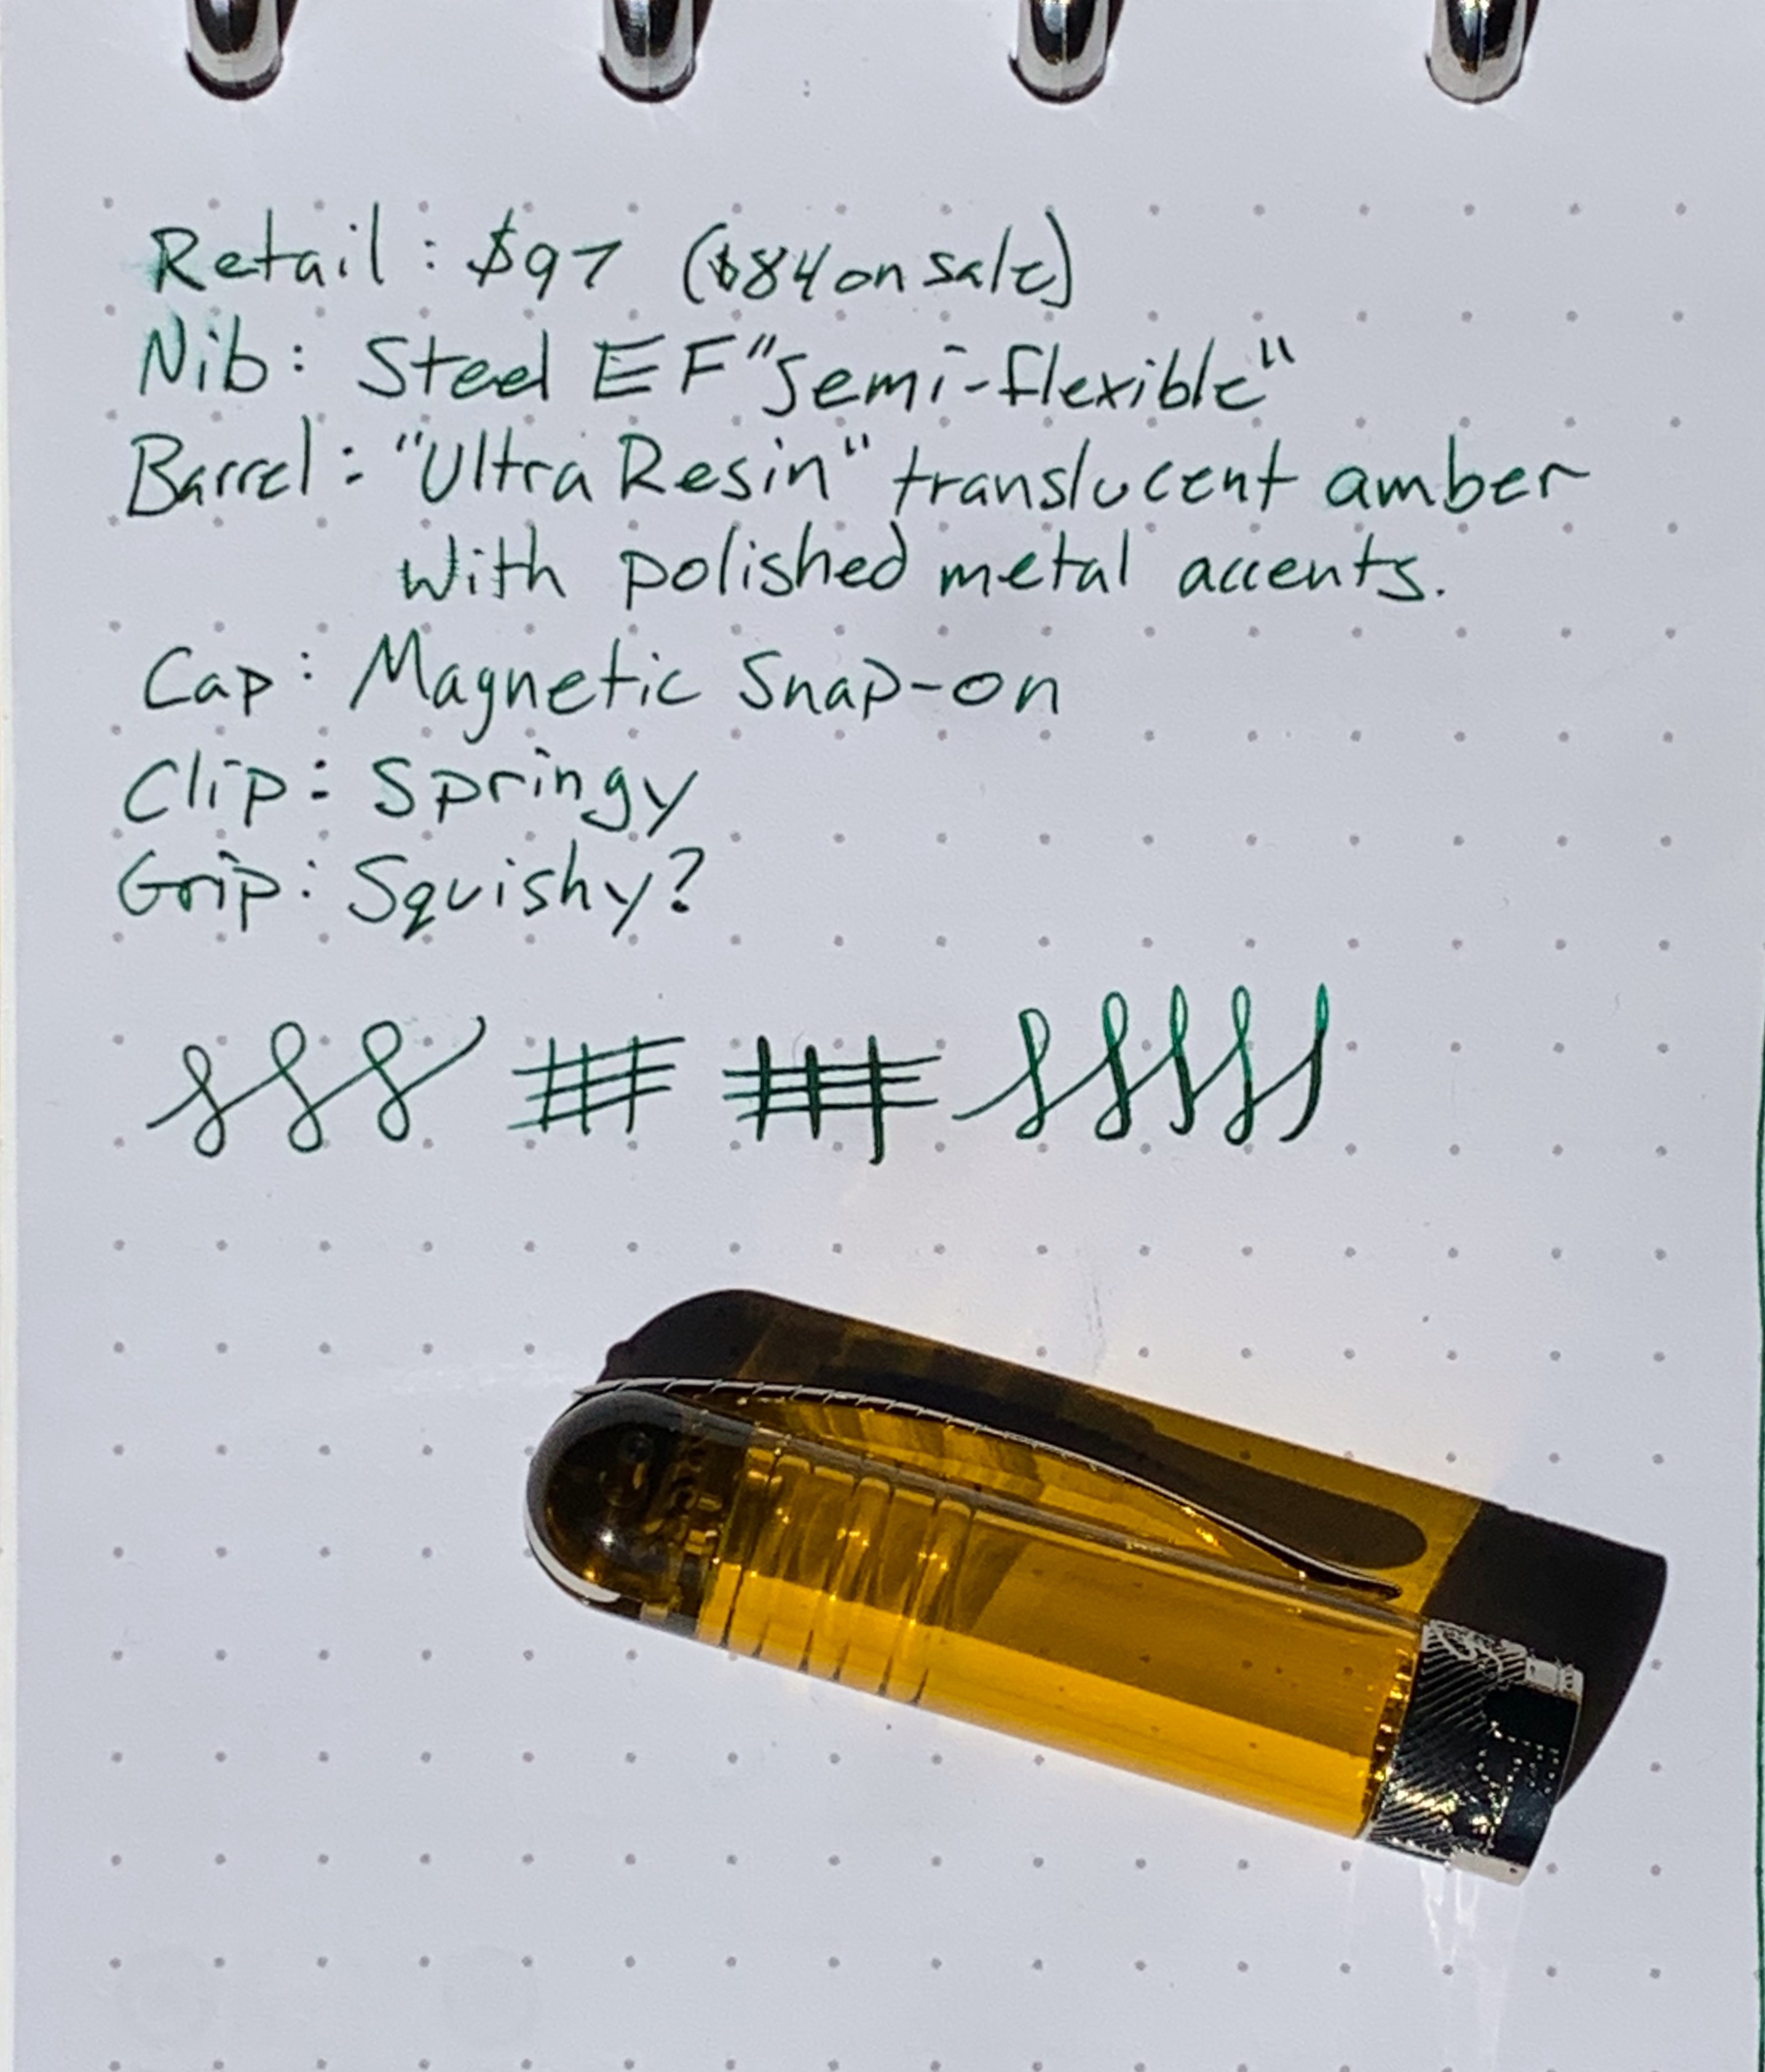 Retail: $97 ($84 on sale)
Nib: Steel EF "Semi-flexible"
Barrel: "Ultra Resin" translucent amber
with polished metal accents.
Cap: Magnetic Snap-on
Clip: Springy
Grip: Squishy?